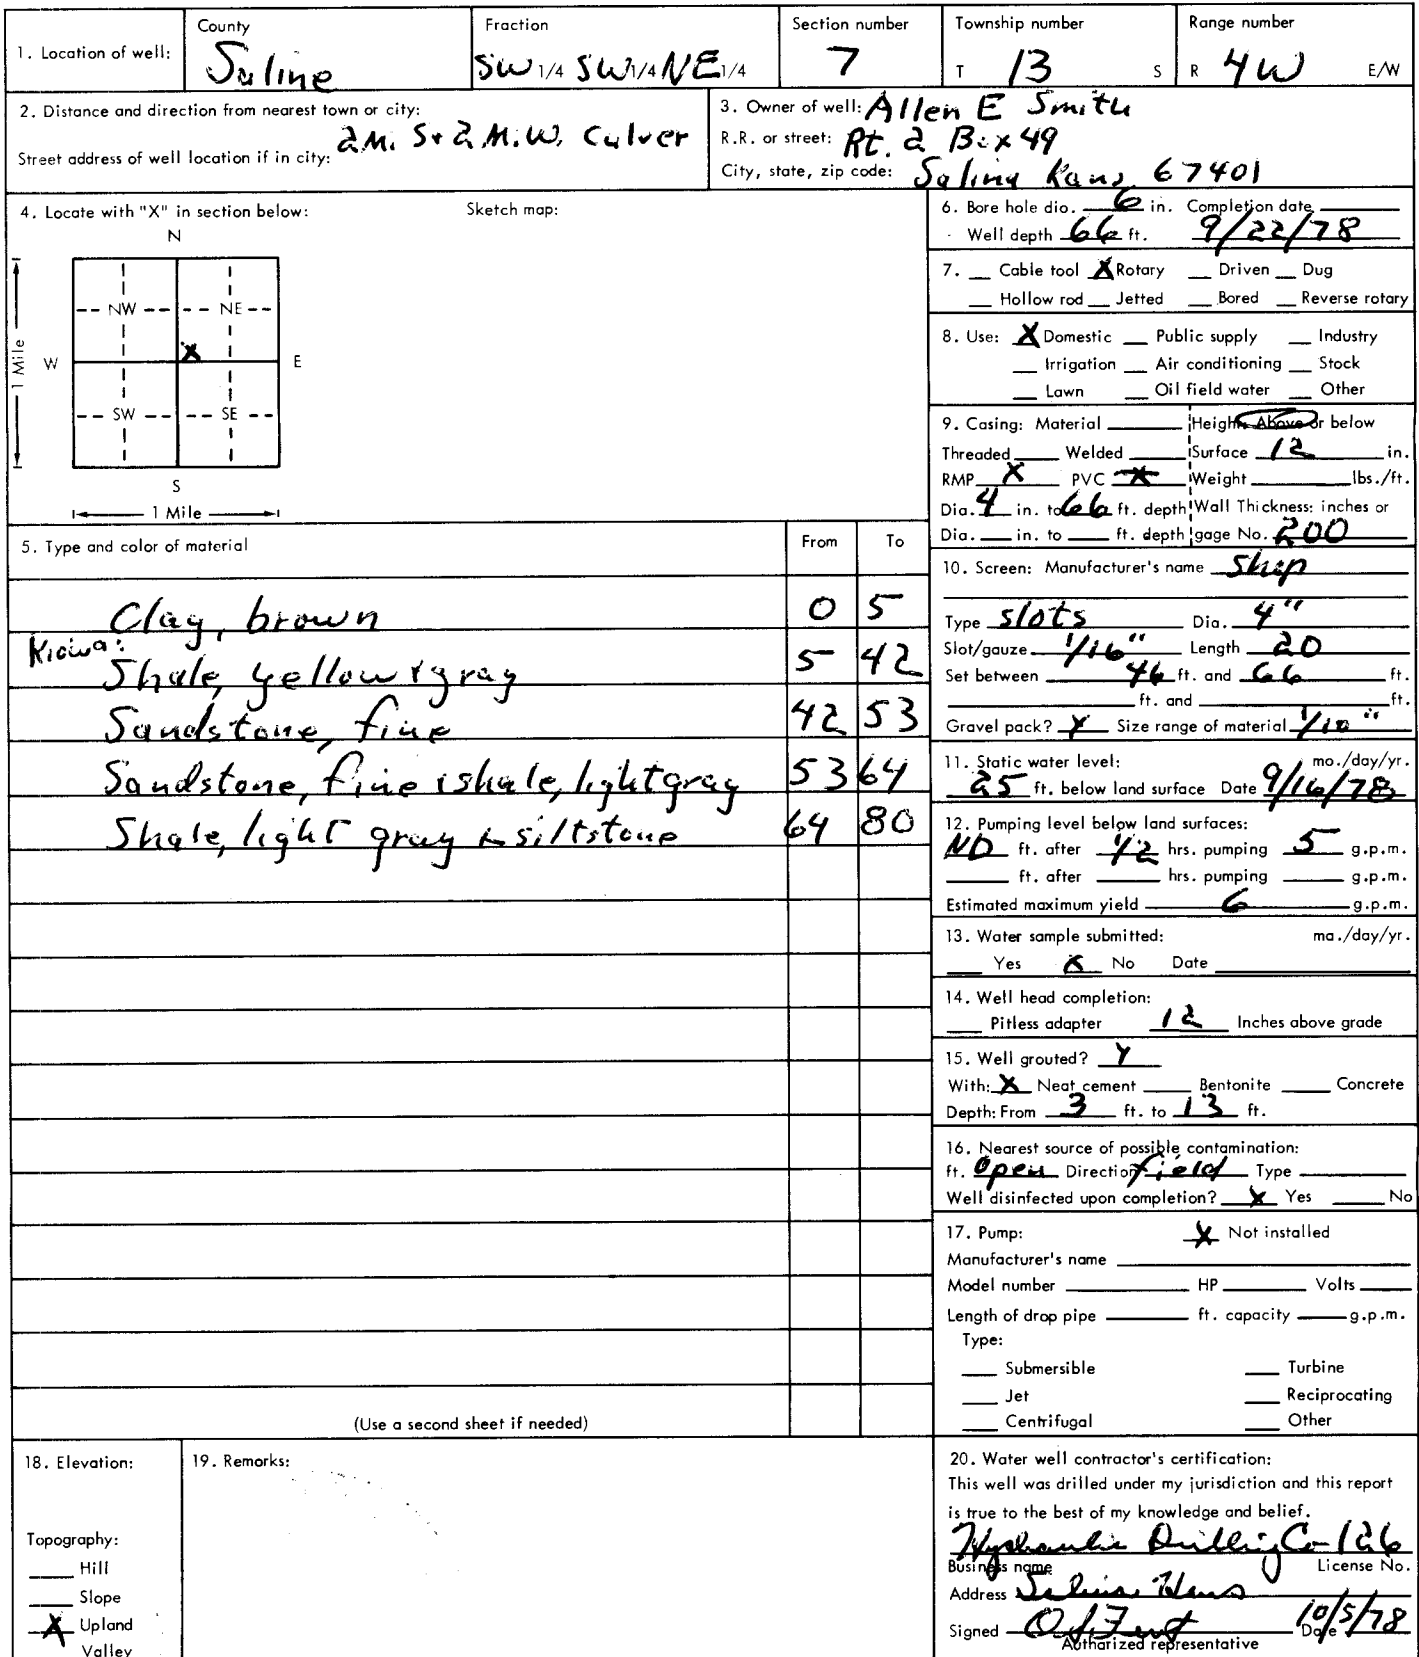 1. Location of well: County Saline Fraction SW 1/4 SW 1/4 NE 1/4 Section number 7 Township number T 13 S Range number R 4W E/W
2. Distance and direction from nearest town or city: 2 M. S + 2 M. W. Culver
Street address of well location if in city:
3. Owner of well: Allen E Smith
R.R. or street: Rt. 2 Box 49
City, state, zip code: Salina Kans 67401
4. Locate with "X" in section below:
Sketch map:
N
NW NE
X
W E
SW SE
S
1 Mile
1 Mile
5. Type and color of material From To
Clay, brown 0 5
Kiowa:
Shale, yellow & gray 5 42
Sandstone, fine 42 53
Sandstone, fine & shale, light gray 53 64
Shale, light gray & siltstone 64 80
(Use a second sheet if needed)
6. Bore hole dia. 6 in. Completion date
Well depth 66 ft. 9/22/78
7. Cable tool X Rotary Driven Dug
Hollow rod Jetted Bored Reverse rotary
8. Use: X Domestic Public supply Industry
Irrigation Air conditioning Stock
Lawn Oil field water Other
9. Casing: Material Height: Above or below
Threaded Welded Surface 12 in.
RMP X PVC X Weight lbs./ft.
Dia. 4 in. to 66 ft. depth Wall Thickness: inches or
Dia. in. to ft. depth gage No. 200
10. Screen: Manufacturer's name Shop
Type slots Dia. 4"
Slot/gauze 1/16" Length 20
Set between 46 ft. and 66 ft.
ft. and ft.
Gravel pack? Y Size range of material 1/10"
11. Static water level: mo./day/yr.
25 ft. below land surface Date 9/16/78
12. Pumping level below land surfaces:
ND ft. after 1/2 hrs. pumping 5 g.p.m.
ft. after hrs. pumping g.p.m.
Estimated maximum yield 6 g.p.m.
13. Water sample submitted: mo./day/yr.
Yes X No Date
14. Well head completion:
Pitless adapter 12 Inches above grade
15. Well grouted? Y
With: X Neat cement Bentonite Concrete
Depth: From 3 ft. to 13 ft.
16. Nearest source of possible contamination:
ft. Open Direction field Type
Well disinfected upon completion? X Yes No
17. Pump: X Not installed
Manufacturer's name
Model number HP Volts
Length of drop pipe ft. capacity g.p.m.
Type:
Submersible Turbine
Jet Reciprocating
Centrifugal Other
18. Elevation:
Topography:
Hill
Slope
X Upland
Valley
19. Remarks:
20. Water well contractor's certification:
This well was drilled under my jurisdiction and this report
is true to the best of my knowledge and belief.
Hydraulic Drilling Co 126
Business name License No.
Address Salina Kans
Signed 10/5/78
Date
Authorized representative